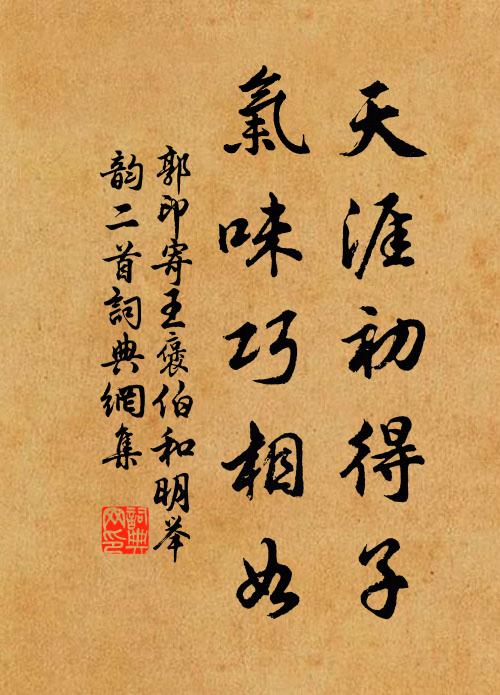 天涯初得子
氣味巧相如
郭印寄王褒伯和明举
韵二首詞典網集